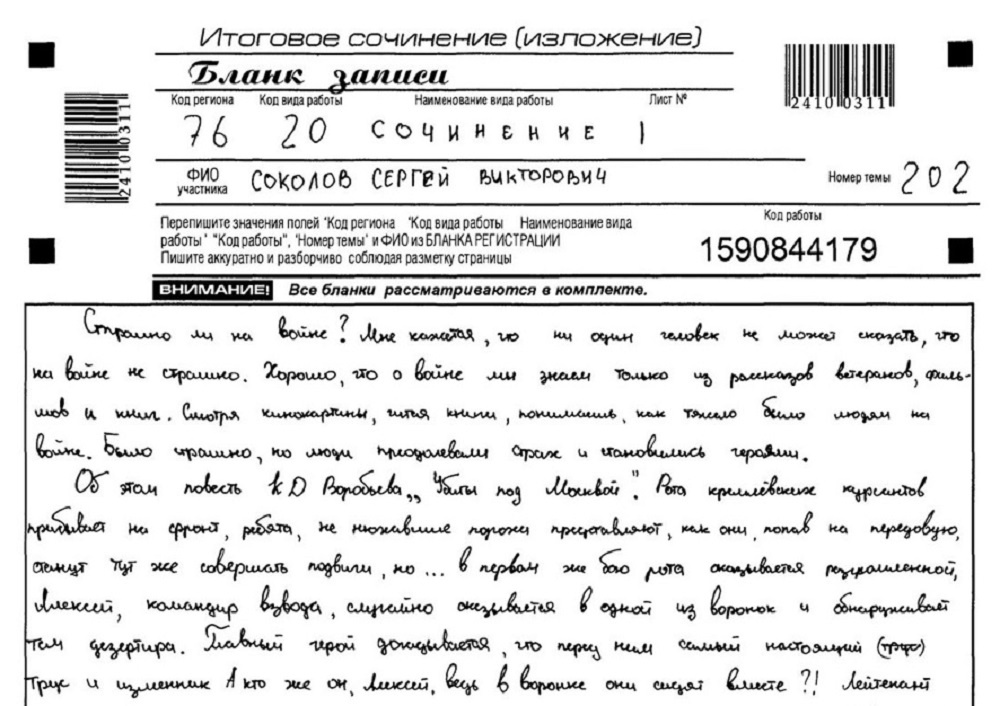 Итоговое сочинение (изложение)
Бланк записи
Код региона Код вида работы Наименование вида работы Лист №
76 20 СОЧИНЕНИЕ 1
2410 0311
2410 0311
ФИО участника СОКОЛОВ СЕРГЕЙ ВИКТОРОВИЧ Номер темы 202
Перепишите значения полей "Код региона "Код вида работы Наименование вида
работы" "Код работы", "Номер темы" и ФИО из БЛАНКА РЕГИСТРАЦИИ
Пишите аккуратно и разборчиво соблюдая разметку страницы
Код работы
1590844179
ВНИМАНИЕ! Все бланки рассматриваются в комплекте.
Страшно ли на войне? Мне кажется, что ни один человек не может сказать, что
на войне не страшно. Хорошо, что о войне мы знаем только из рассказов ветеранов, филь-
мов и книг. Смотря кинокартины, читая книги, понимаешь, как тяжело было людям на
войне. Было страшно, но люди преодолевали страх и становились героями.
Об этом повесть К Д Воробьева „Убиты под Москвой". Рота кремлёвских курсантов
прибывает на фронт, ребята, не нюхавшие пороха представляют, как они, попав на передовую,
станут тут же совершать подвиги, но ... в первом же бою рота оказывается разгромленной,
Алексей, командир взвода, случайно оказывается в одной из воронок и обнаруживает
там дезертира. Главный герой догадывается, что перед ним самый настоящий (трус)
трус и изменник А кто же он, Алексей, ведь в воронке они сидят вместе?! Лейтенант